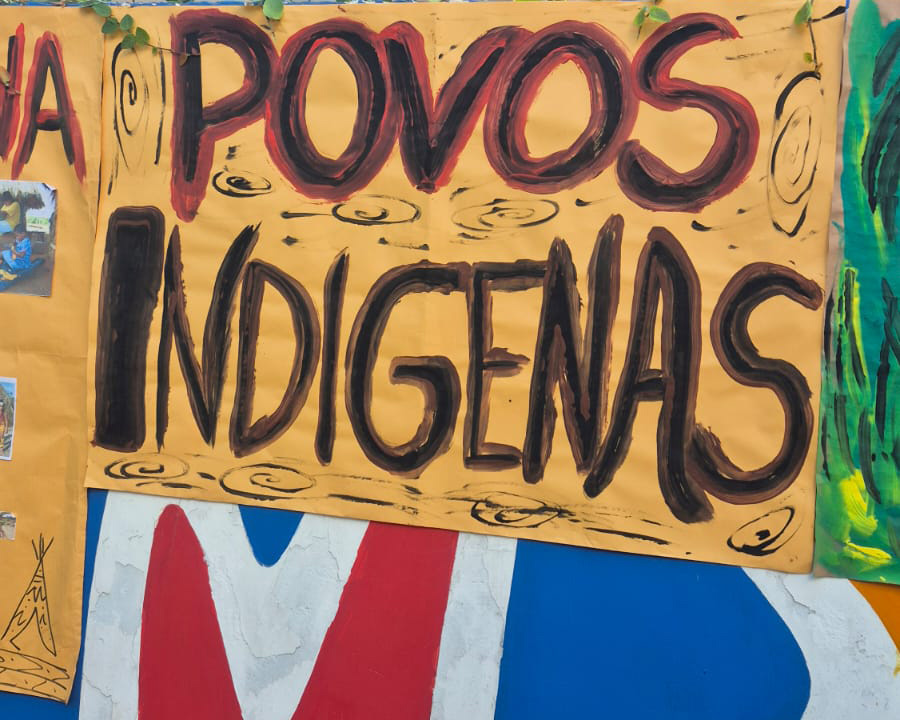 POVOS
INDIGENAS